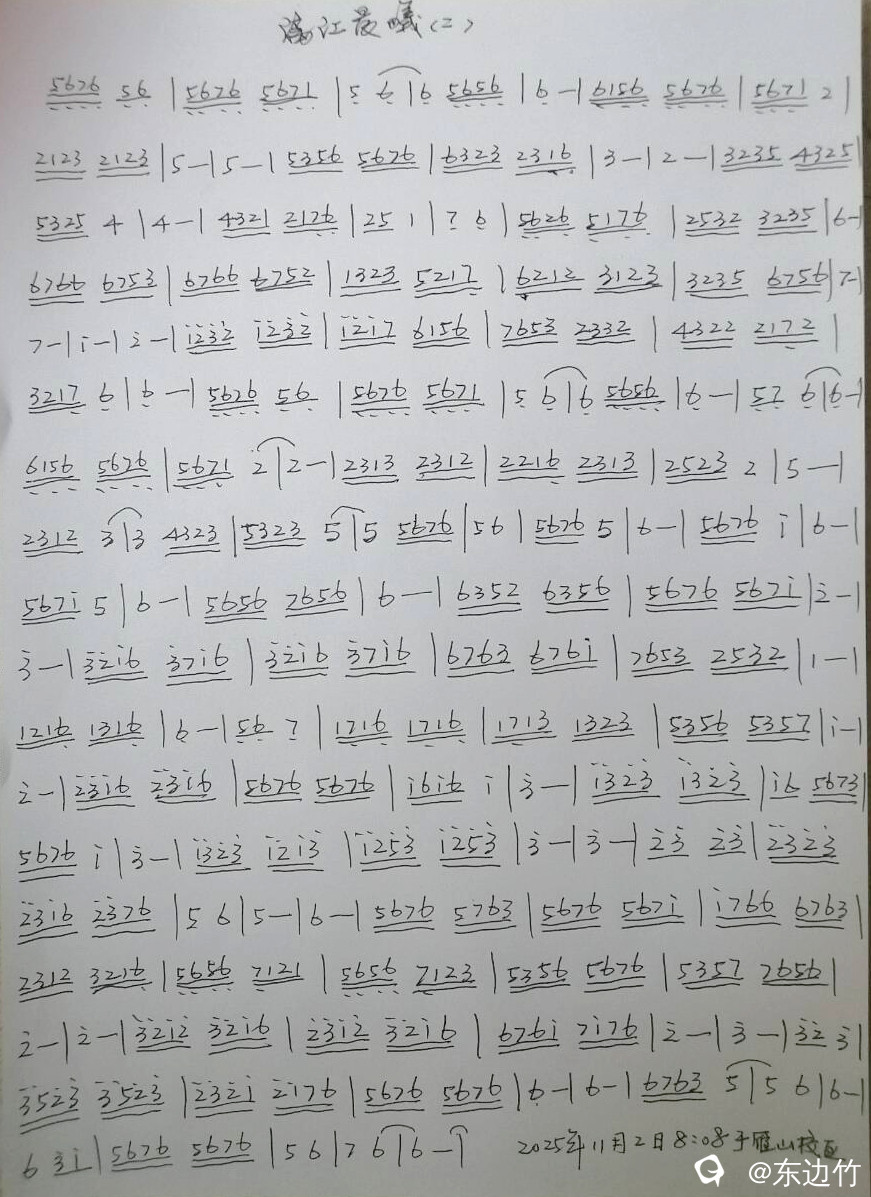 漓江晨曦(二)
5676 56 | 5676 5671 | 5 6 | 6 5656 | 6 - | 6156 5676 | 5671 2 |
2123 2123 | 5 - | 5 - | 5356 5676 | 6323 2316 | 3 - | 2 - | 3235 4325 |
5325 4 | 4 - | 4321 2176 | 25 1 | 7 6 | 5626 5176 | 2532 3235 | 6 - |
6766 6753 | 6766 6752 | 1323 5217 | 6212 3123 | 3235 6756 | 7 - |
7 - | i - | 2̇ - | i2̇3̇2̇ i2̇3̇2̇ | i2̇i7 6156 | 7653 2332 | 4322 2172 |
3217 6 | 6 - | 5626 56 | 5676 5671 | 5 6 | 6 5656 | 6 - | 57 6 | 6 - |
6156 5676 | 5671 2 | 2 - | 2313 2312 | 2216 2313 | 2523 2 | 5 - |
2312 3 | 3 4323 | 5323 5 | 5 5676 | 56 | 5676 5 | 6 - | 5676 i | 6 - |
567i 5 | 6 - | 5656 7656 | 6 - | 6352 6356 | 5676 567i | 2̇ - |
3̇ - | 3̇2̇i6 3̇7i6 | 3̇2̇i6 3̇7i6 | 6763 676i | 7653 2532 | 1 - |
1216 1316 | 6 - | 56 7 | 1716 1716 | 1713 1323 | 5356 5357 | i - |
2̇ - | 2̇3̇i6 2̇3̇i6 | 5676 5676 | i6i6 i | 3̇ - | i3̇2̇3̇ i3̇2̇3̇ | i6 5673 |
5676 i | 3̇ - | i3̇2̇3̇ i2̇i3̇ | i2̇53̇ i2̇53̇ | 3̇ - | 3̇ - | 2̇3̇ 2̇3̇ | 2̇3̇2̇3̇
2̇3̇i6 2̇3̇76 | 5 6 | 5 - | 6 - | 5676 5763 | 5676 567i | i766 6763 |
2312 3216 | 5656 7121 | 5656 7123 | 5356 5676 | 5357 7656 |
2̇ - | 2̇ - | 3̇2̇i2̇ 3̇2̇i6 | 2̇3̇i2̇ 3̇2̇i6 | 676i 7i76 | 2̇ - | 3̇ - | 3̇2̇ 3̇ |
3̇52̇3̇ 3̇52̇3̇ | 2̇3̇2̇i 2̇i76 | 5676 5676 | 6 - | 6 - | 6763 5 | 5 6 | 6 - |
6 3̇i | 5676 5676 | 5 6 | 7 6 | 6 - | 2025年11月2日8:08于雁山校区
@东边竹